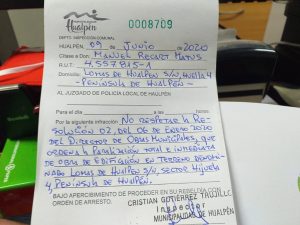 Hualpén
0008709
DEPTO. INSPECCIÓN COMUNAL
HUALPÉN, 09 de JUNIO de 2020
Cítase a Don MANUEL RECART MATUS
R.U.T. 4.557.815-1
Domicilio LOMAS DE HUALPEN S/N, HIJUELA 4
PENINSULA DE HUALPEN
AL JUZGADO DE POLICIA LOCAL DE HUALPÉN
Para el día a las
Por la siguiente infracción NO RESPETAR LA RE-
SOLUCION 02, DEL 06 DE ENERO 2020
DEL DIRECTOR DE OBRAS MUNICIPALES, QUE
ORDENA LA PARALIZACION TOTAL E INMEDIATA
DE OBRA DE EDIFICACION EN TERRENO DENOMI-
NADO LOMAS DE HUALPEN S/N, SECTOR HIJUELA
4, PENINSULA DE HUALPEN.
BAJO APERCIBIMIENTO DE PROCEDER EN SU REBELDIA CON
ORDEN DE ARRESTO.
CRISTIAN GUTIÉRREZ TRUJILLO
Inspector
MUNICIPALIDAD DE HUALPÉN